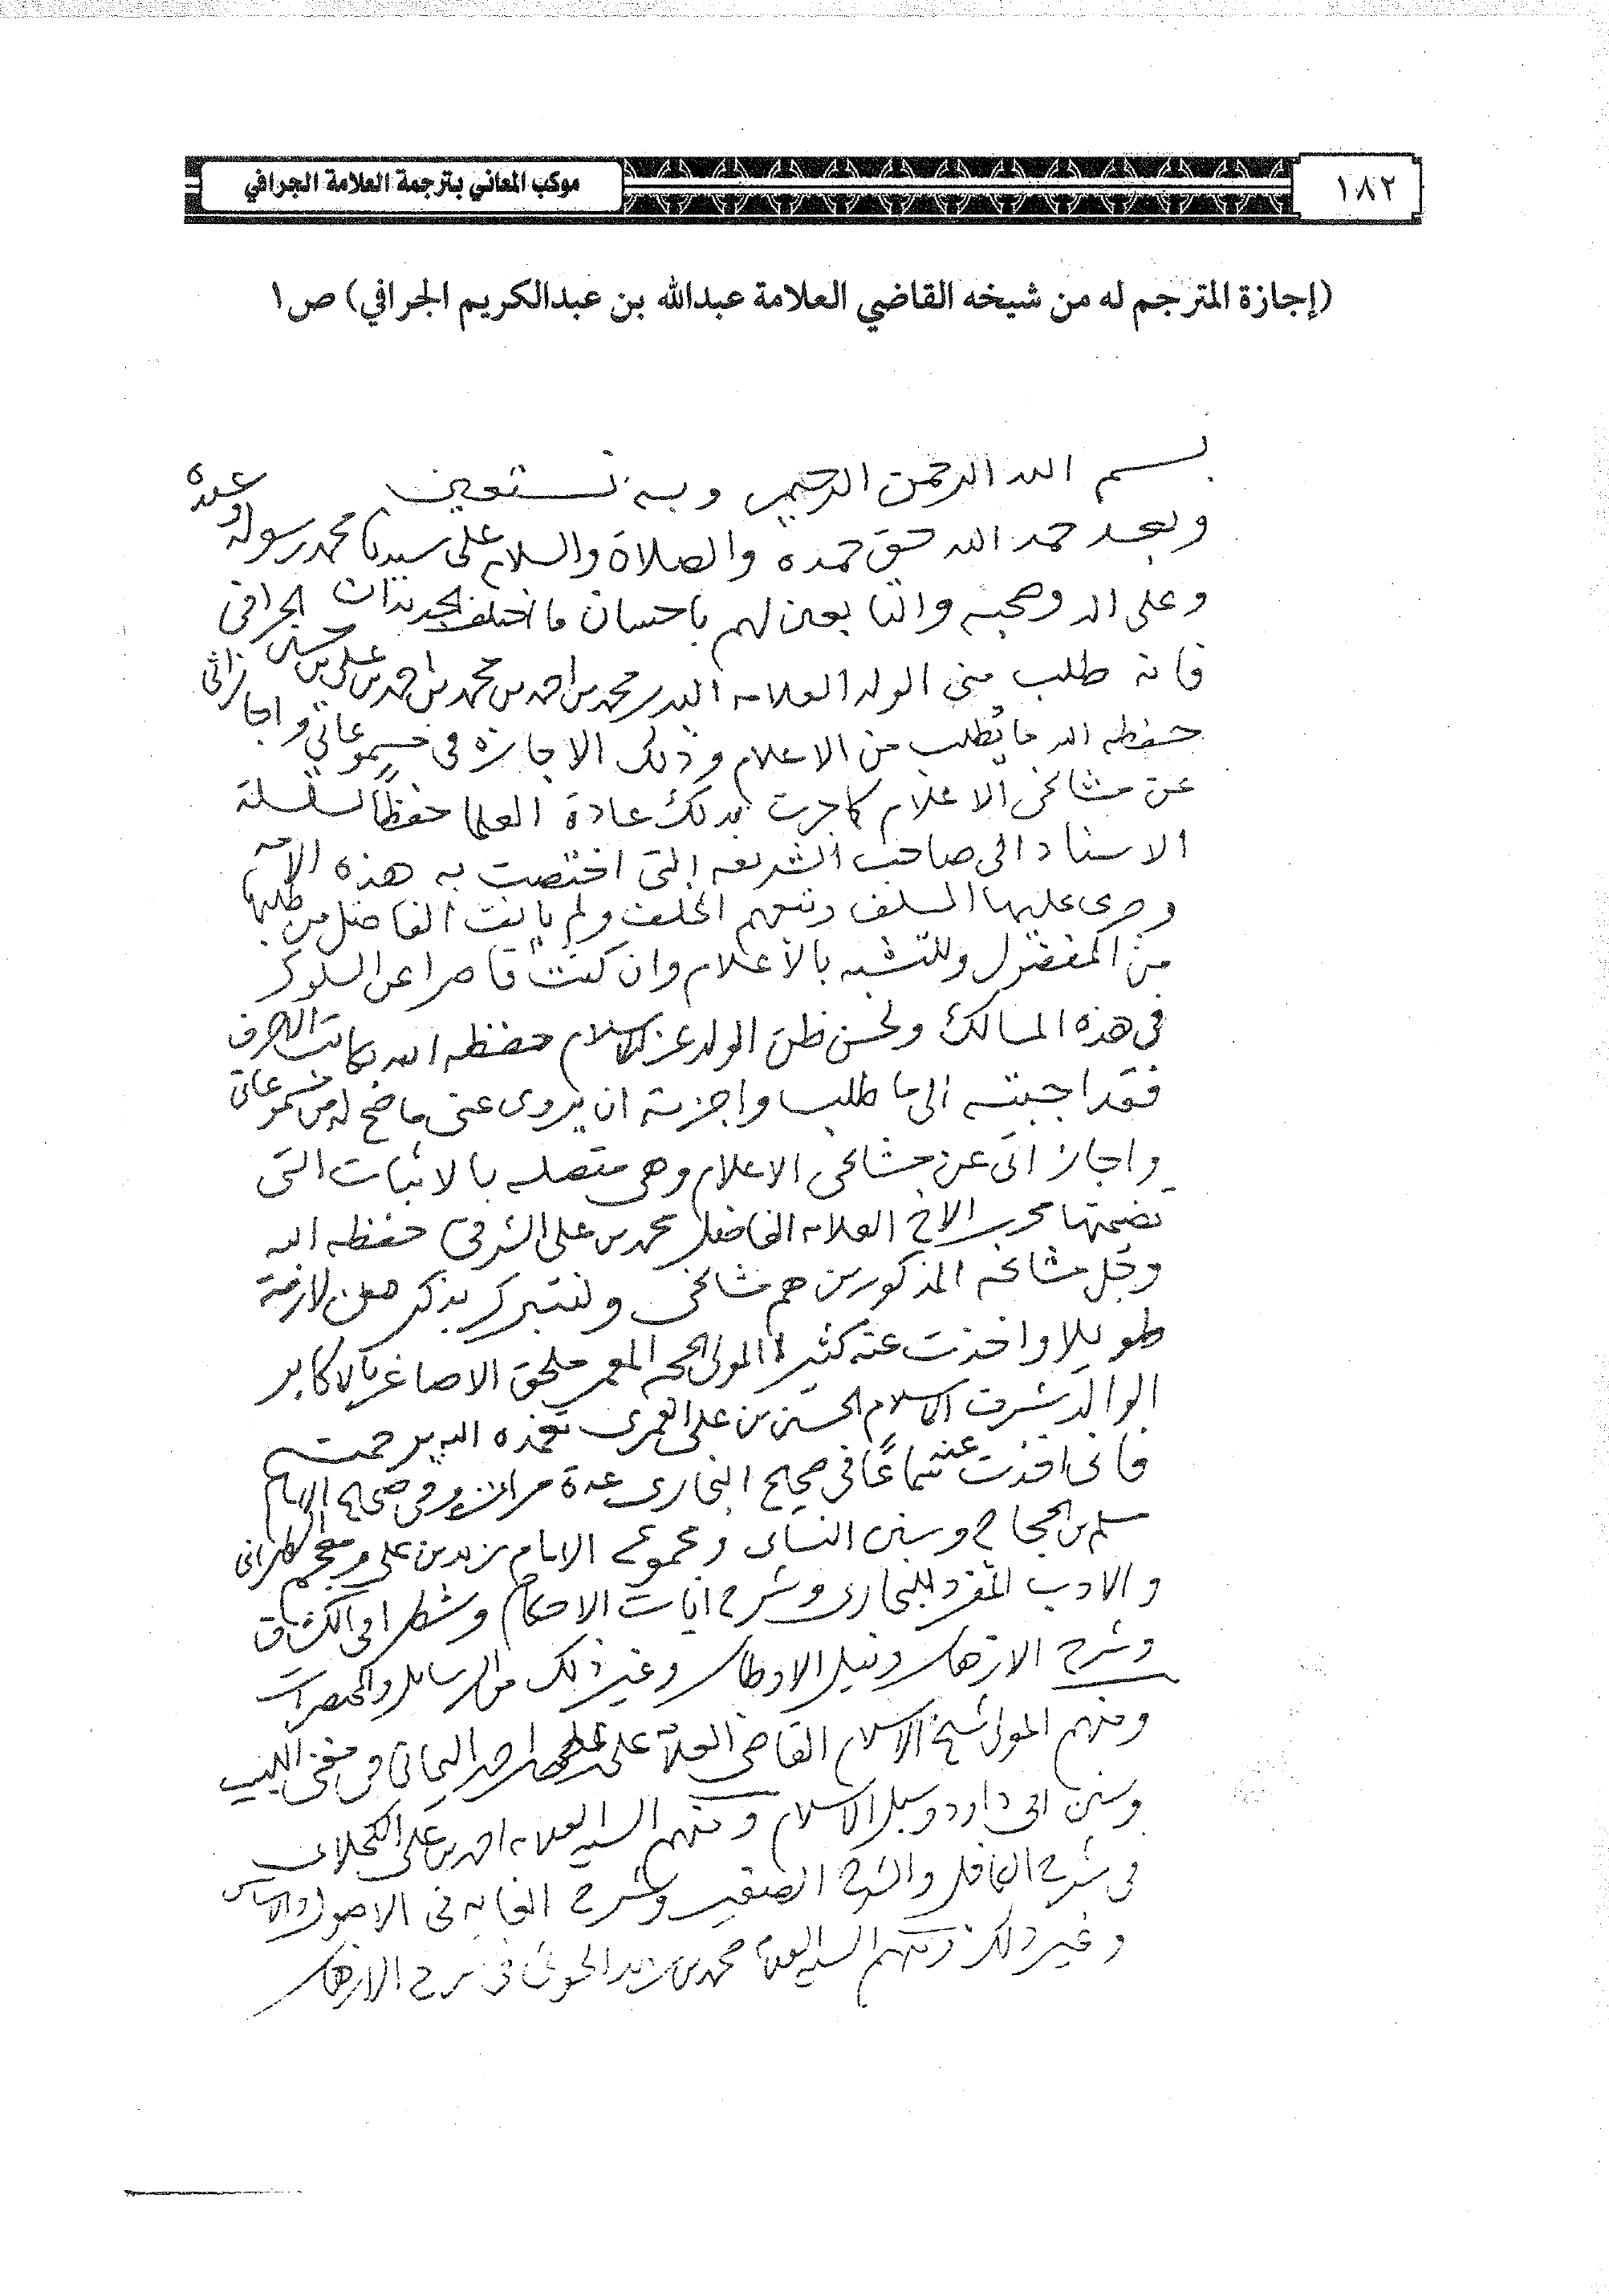 ١٨٢
موكب المعاني بترجمة العلامة الجرافي
(إجازة المترجم له من شيخه القاضي العلامة عبدالله بن عبدالكريم الجرافي) ص١
بسم الله الرحمن الرحيم وبه نستعين
وبعد حمد الله حق حمده والصلاة والسلام على سيدنا محمد رسوله وعبده
وعلى اله وصحبه والتابعين لهم باحسان ما اختلف الجديدان
فانه طلب مني الولد العلامه البدر محمد بن احمد بن محمد بن احمد بن علي بن حسين الجرافي
حفظه الله ما يُطلب من الاعلام وذلك الاجازة في مسموعاتي واجازاتي
عن مشائخي الاعلام كما جرت بذلك عادة العلما حفظاً لسلسلة
الاسناد الى صاحب الشريعه التي اختصت به هذه الامه
وجرى عليها السلف وتبعهم الخلف ولم يانف الفاضل من طلبها
من المفضول وللتشبه بالأعلام وان كنت قاصرا عن السلوك
في هذه المسالك ولحسن ظن الولد عز الاسلام حفظه الله بكاتب الاحرف
فقد اجبته الى ما طلب واجزته ان يروي عني ما صح له من مسموعاتي
واجازاتي عن مشائخي الاعلام وهي متصله بالاثبات التي
تضمنها الاخ العلامه الفاضل محمد بن علي الشرفي حفظه الله
وجُل مشائخه المذكورين هم مشائخي ولنتبرك بذكر من لازمته
طويلا واخذت عنه كثيرا المولى الحجه المعمر ملحق الاصاغر بالاكابر
الوالد شرف الاسلام الحسين بن علي العمري تغمده الله برحمته
فاني اخذت عنه سماعًا في صحيح البخاري عدة مرات وفي صحيح الامام
مسلم بن الحجاج وسنن النسائي ومجموع الامام زيد بن علي ومعجم الطبراني
والادب المفرد للبخاري وشرح ايات الاحكام وشطرا في الكشاف
وشرح الازهار ونيل الاوطار وغير ذلك من الرسائل والمختصرات
ومنهم المولى شيخ الاسلام القاضي العلامة علي احمد اليماني في مغني اللبيب
وسنن ابي داود وسبل الاسلام ومنهم السيد العلامه احمد بن علي الكحلاني
في شرح الكافل والشرح الصغير وشرح الغايه في الاصول والاساس
وغير ذلك ومنهم السيد العلامة محمد بن زيد الحوثي في شرح الازهار